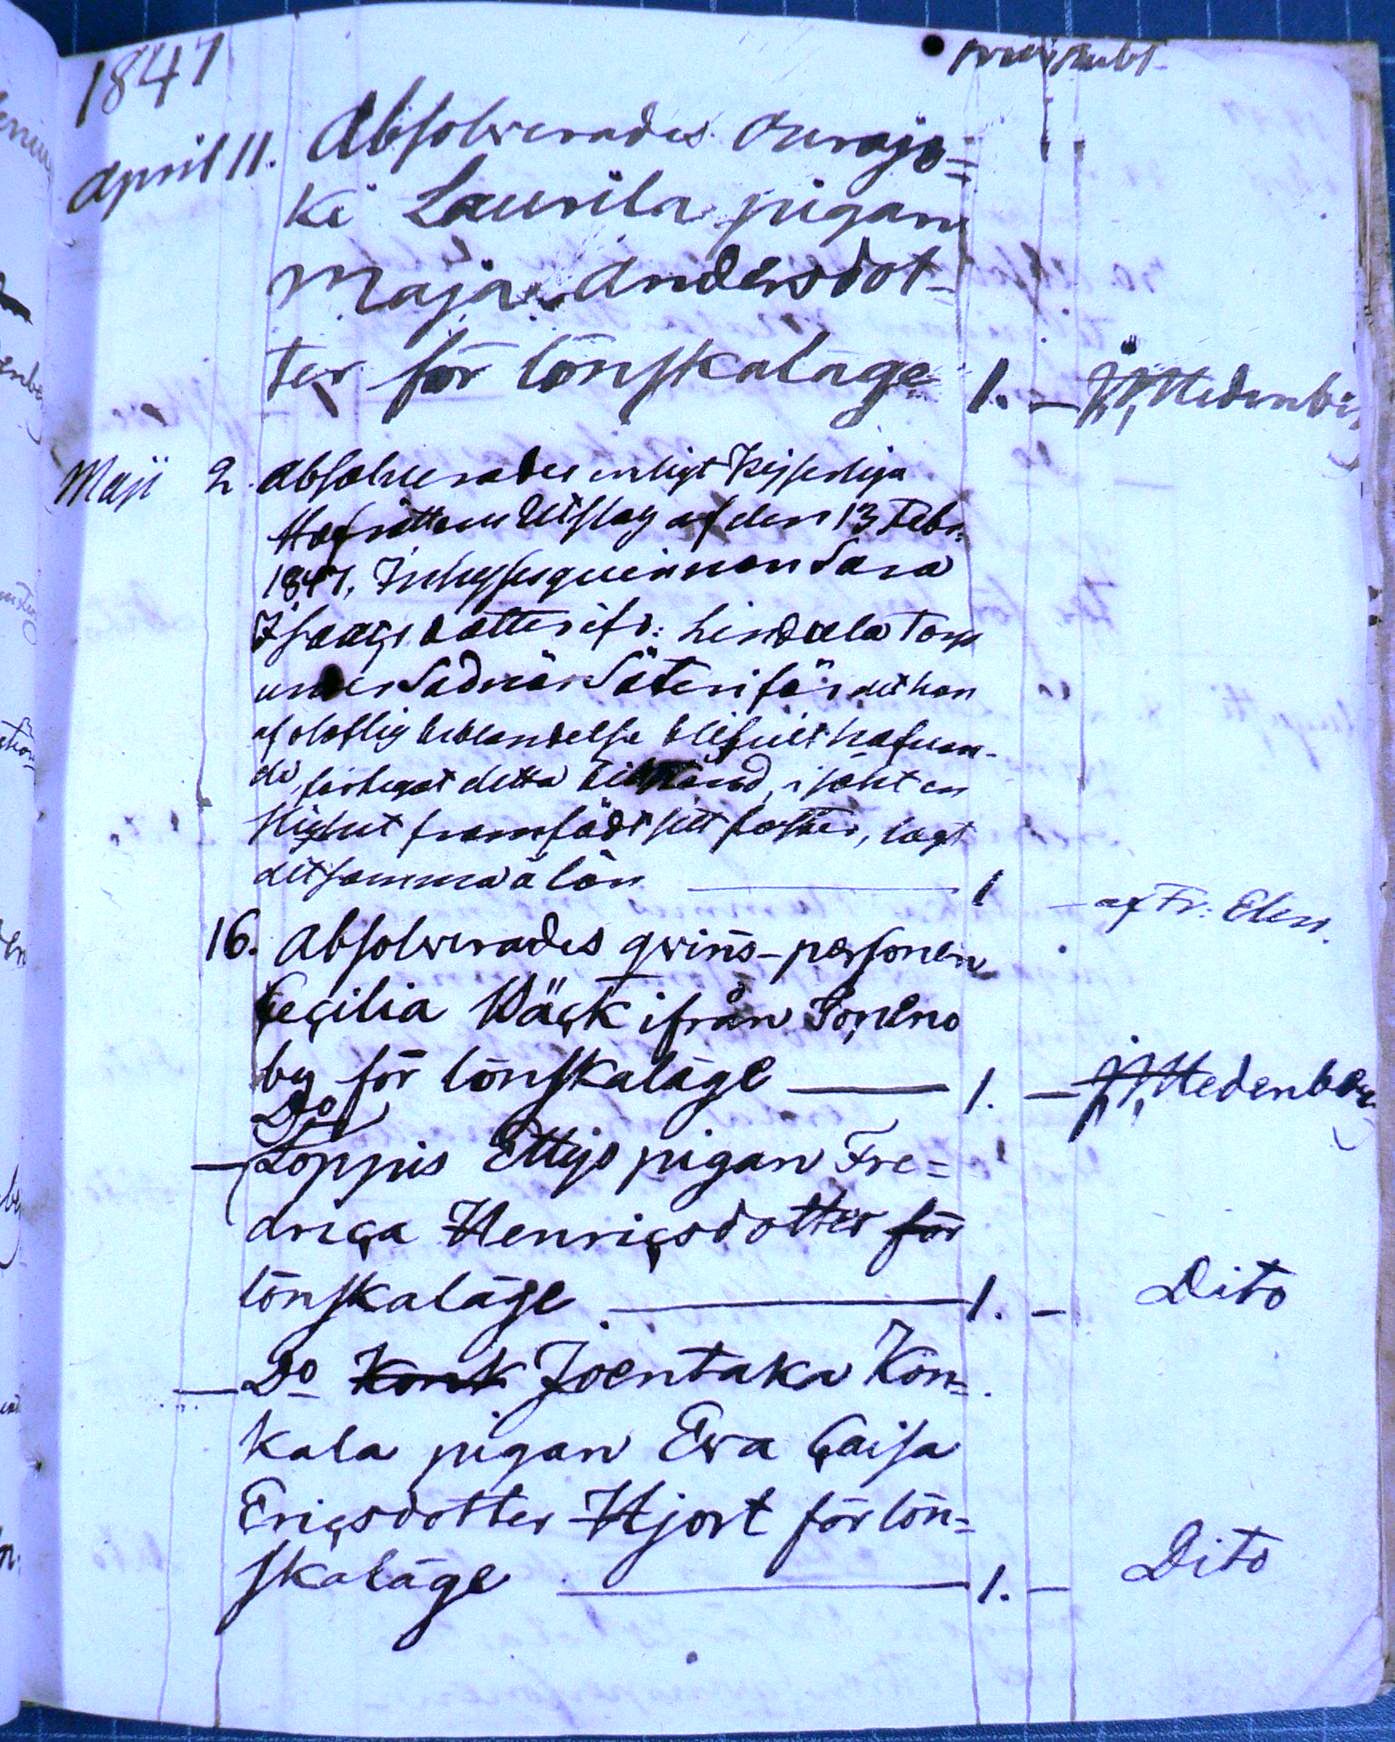 1847
April 11. Absolverades Ourajo=
ki Laurila pigan
Maja Andersdot-
ter för lönskaläge 1. — Hedenberg
Maji 2. Absolverades enligt Kejserliga
Hofrättens Utslag af den 13 Febr.
1847, Inhysesquinnan Sara
Isaacs dotter ifr: Lindula Torp
under Sadnäs Säteri för det hon
af oloflig beblandelse blifvit hafvan-
de, förtegat detta tillstånd, i
framfödt sitt foster, lagt
detsamma å lön — 1 — af Fr: Elen.
16. Absolverades qvins-personen
Cecilia Wäck ifrån
by för lönskaläge — 1. — Hedenberg
— Do Loppis Ettijo pigan Fre=
drica Henricsdotter för
lönskaläge — 1. — Dito
— Do Konk Joentaka Kon=
kala pigan Eva Caisa
Ericsdotter Hjort för lön=
skaläge — 1. — Dito